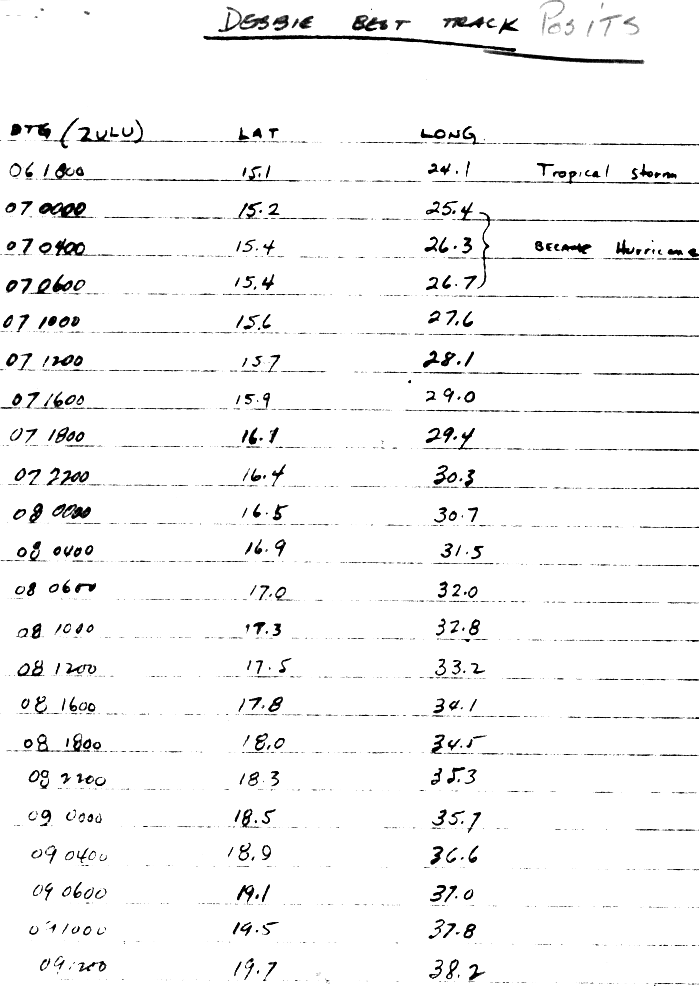 DEBBIE BEST TRACK POSITS
DTG (ZULU) LAT LONG
06 1800 15.1 24.1 Tropical storm
07 0000 15.2 25.4
07 0400 15.4 26.3 BECAME Hurricane
07 0600 15.4 26.7
07 1000 15.6 27.6
07 1200 15.7 28.1
07 1600 15.9 29.0
07 1800 16.1 29.4
07 2200 16.4 30.3
08 0000 16.5 30.7
08 0400 16.9 31.5
08 0600 17.0 32.0
08 1000 17.3 32.8
08 1200 17.5 33.2
08 1600 17.8 34.1
08 1800 18.0 34.5
08 2200 18.3 35.3
09 0000 18.5 35.7
09 0400 18.9 36.6
09 0600 19.1 37.0
09 1000 19.5 37.8
09 1200 19.7 38.2